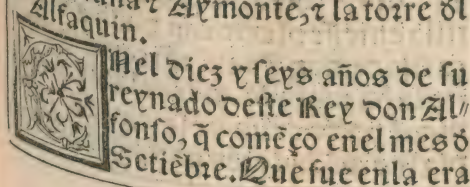 ana τ Aymonte, τ la torre dl
Alfaquin.
ENel diez y seys años de su
reynado deste Rey don Al/
fonso, q̃ començo enel mes d
Setiẽbre. Que fue enla era